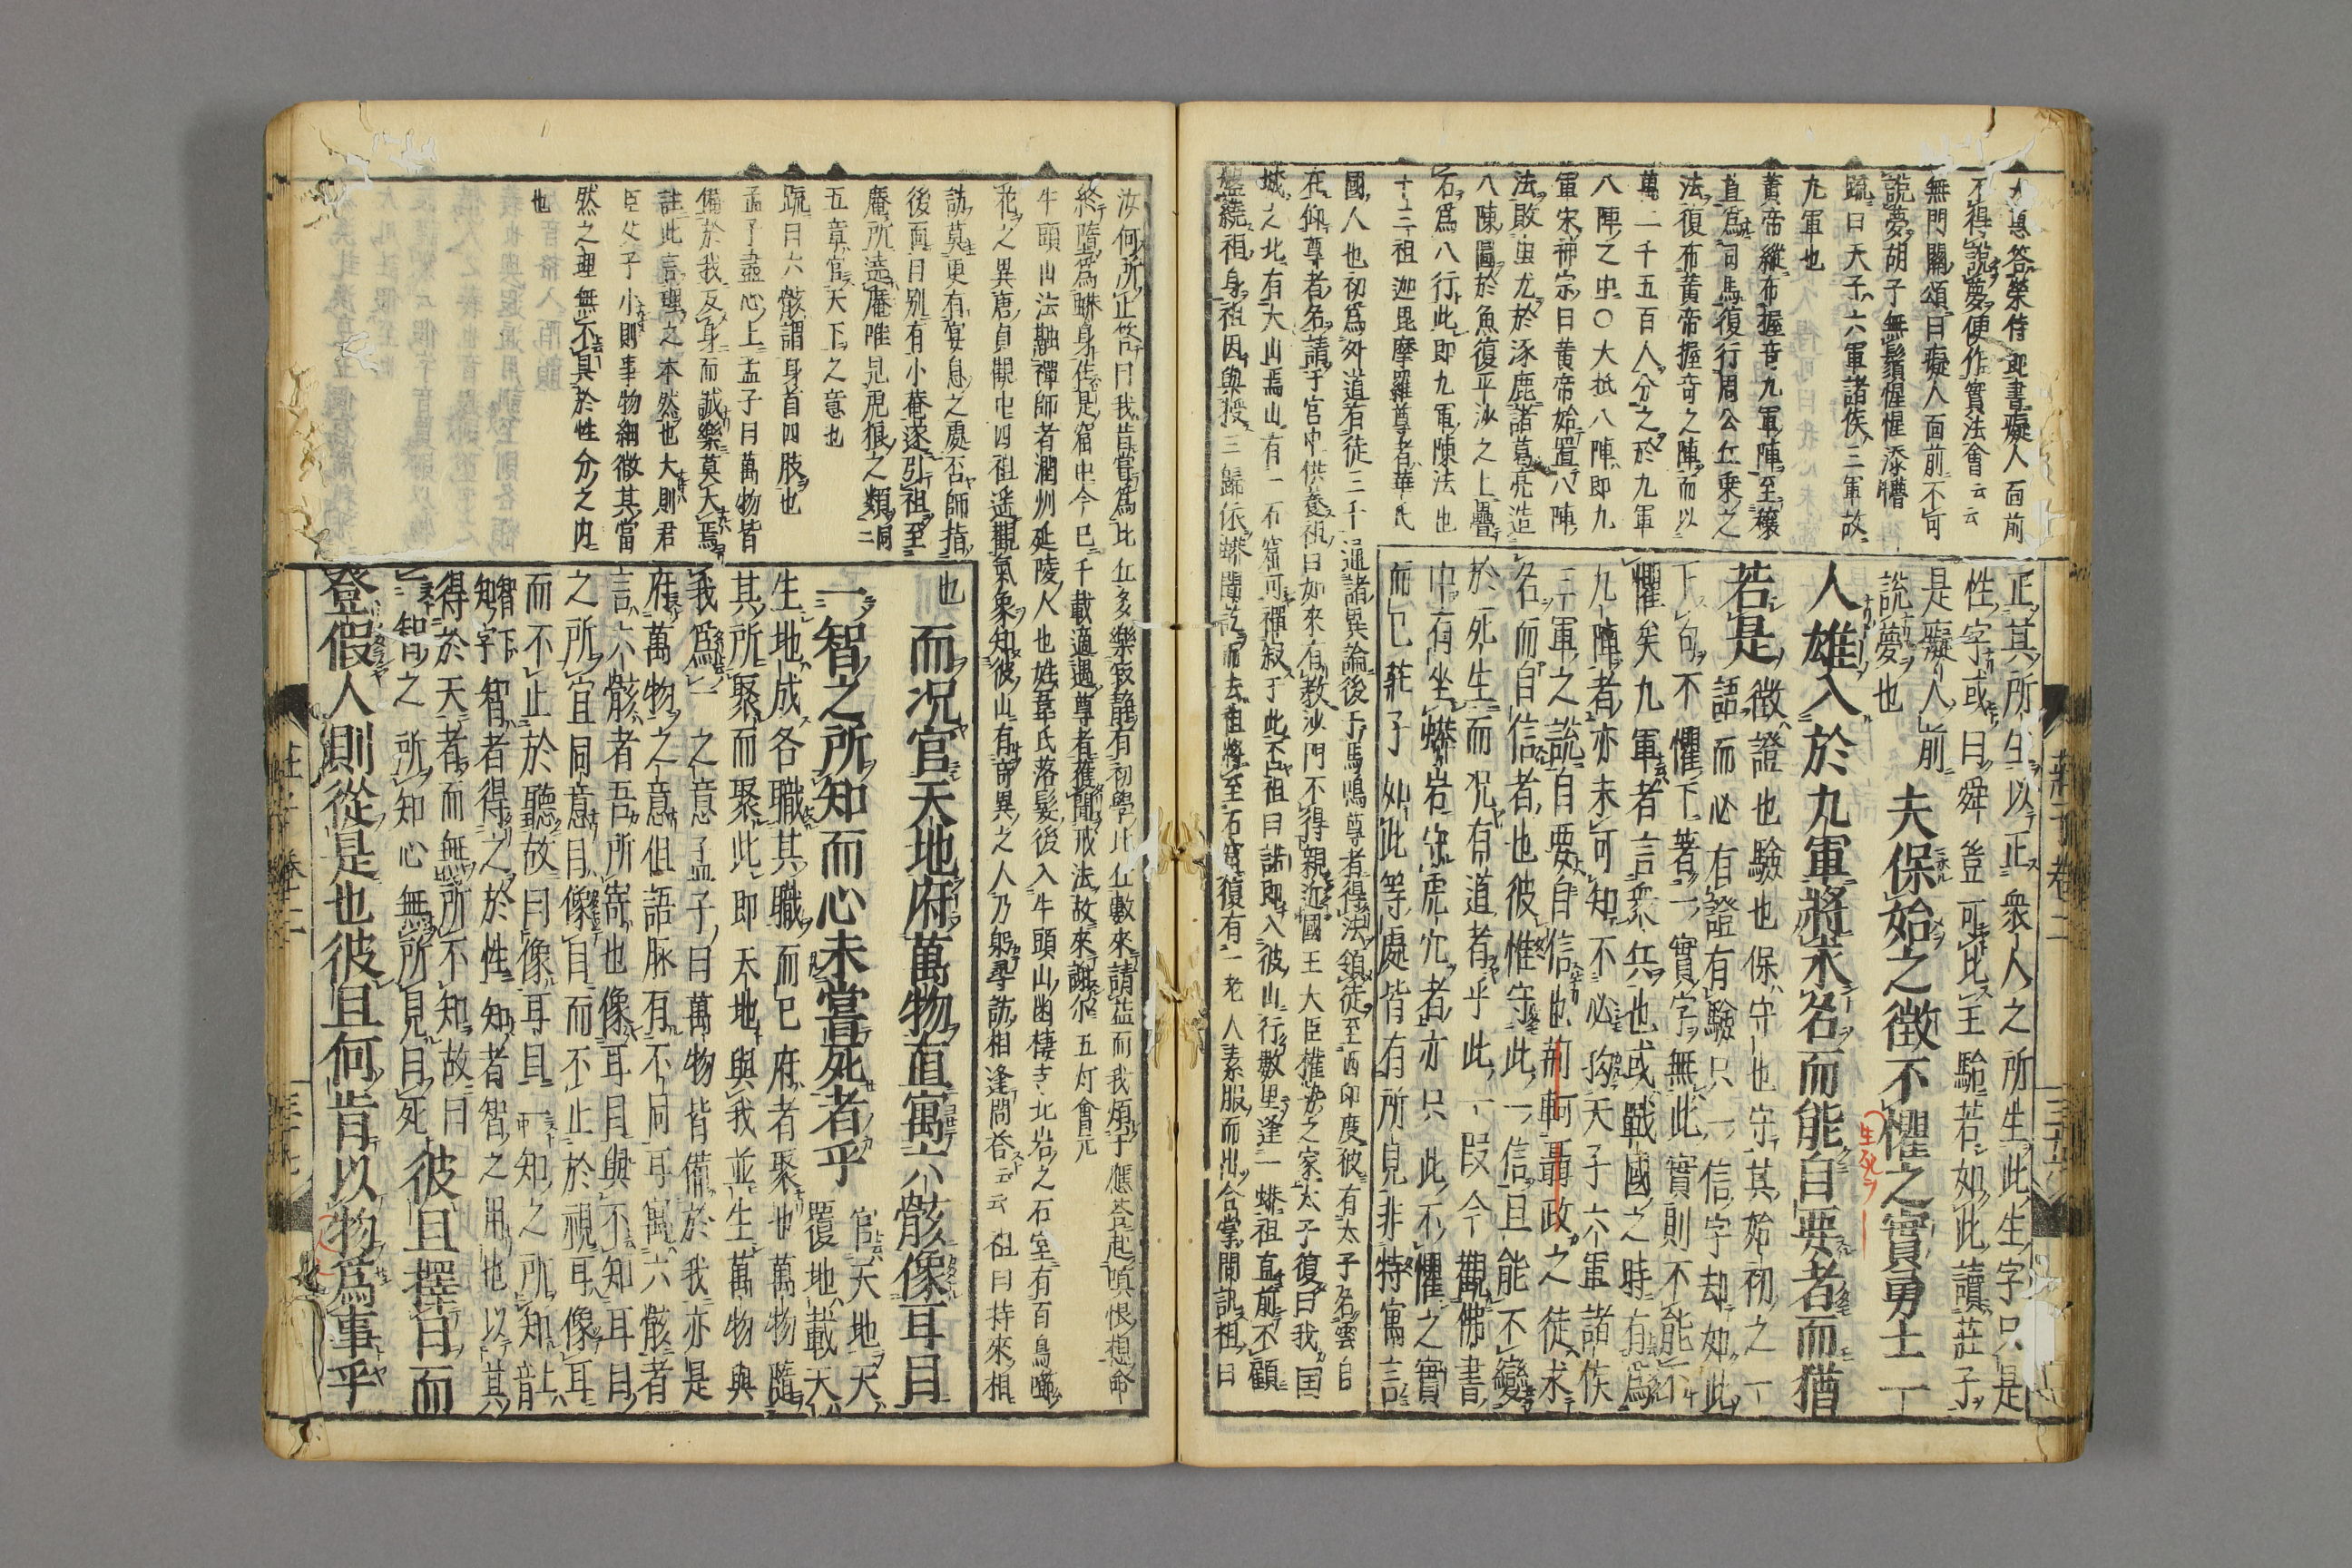 大惠答榮侍郎書癡人面前
不得說夢便作實法會云云
無門關頌曰癡人面前不可
說夢胡子無鬚惺惺添懵
疏曰天子六軍諸侯三軍故
九軍也
黃帝縱布握竒九軍陣至穰
苴爲司馬復行周公丘乘之
法復布黃帝握竒之陣而以
萬二千五百人分之於九軍
八陣之中〇大抵八陣即九
軍宋神宗曰黃帝始置八陣
法敗蚩尤於涿鹿諸葛亮造
八陳圖於魚復平沙之上壘
石爲八行此即九軍陳法也
十三祖迦毘摩羅尊者華氏
國人也初爲外道有徒三千通諸異論後于馬鳴尊者得法領徒至西印度彼有太子名雲自
在仰尊者名請于宮中供養祖曰如來有教沙門不得親近國王大臣權勢之家太子復曰我国
城之北有大山焉山有一石窟可禪寂于此否祖曰諾即入彼山行數里逢一蟒祖直前不顧
盤繞祖身祖因與授三歸依蟒聞訖而去祖將至石窟復有一老人素服而出合掌問訊祖曰
正其所生以正衆人之所生此生字只是
性字或曰舜豈可比王駘若如此讀莊子
是癡人前
說夢也
夫保始之徵不懼之實勇士一
人雄入於九軍將求名而能自要者而猶
若是
徵證也驗也保守也守其始初之一
語而必有證有驗只一信字却如此
下句不懼下著一實字無此實則不能不
懼矣九軍者言衆兵也或戰國之時有爲
九陣者亦未可知不必拘天子六軍諸侯
三軍之說自要自信也荊軻聶政之徒求
名而自信者也彼惟守此一信且能不變
於死生而况有道者乎此一段今觀佛書
中有坐蟒岩守虎穴者亦只此不懼之實
而已莊子如此等處皆有所見非特寓言
生死
莊子卷二
三十六
汝何所止答曰我昔嘗爲比丘多樂寂靜有初學比丘數來請益而我煩于應答起嗔恨想命
終墮爲蟒身住是窟中今巳千載適遇尊者獲聞戒法故來謝尔五灯會元
牛頭山法融禪師者潤州延陵人也姓韋氏落髮後入牛頭山幽棲寺北岩之石室有百鳥啣
花之異唐貞觀中四祖遥觀氣象知彼山有竒異之人乃躬尋訪相逢問荅云云祖曰持來相
訪莫更有宴息之處否師指
後面曰別有小菴遂引祖至
庵所遶庵唯見虎狼之類同二
五章官天下之意也
疏曰六骸謂身首四肢也
孟子盡心上孟子曰萬物皆
備於我反身而誠樂莫大焉
註此言理之本然也大則君
臣父子小則事物細微其當
然之理無不具於性分之内
也
也
而况官天地府萬物直寓六骸像耳目
一智之所知而心未嘗死者乎
官天地天
覆地載天
生地成各職其職而已府者聚也萬物隨
其所聚而聚此即天地與我並生萬物與
我爲一之意孟子曰萬物皆備於我亦是
府萬物之意但語脉有不同耳寓六骸者
言六骸者吾所寄也像耳目與不知耳目
之所宜同意目像目而不止於視耳像耳
而不止於聽故曰像耳目一知之所知上音
智下
知字智者得之於性知者智之用也以其
得於天者而無所不知故曰
一智之所知心無所見目死
彼且擇日而
登假人則從是也彼且何肯以物爲事乎
莊子卷二
三十七